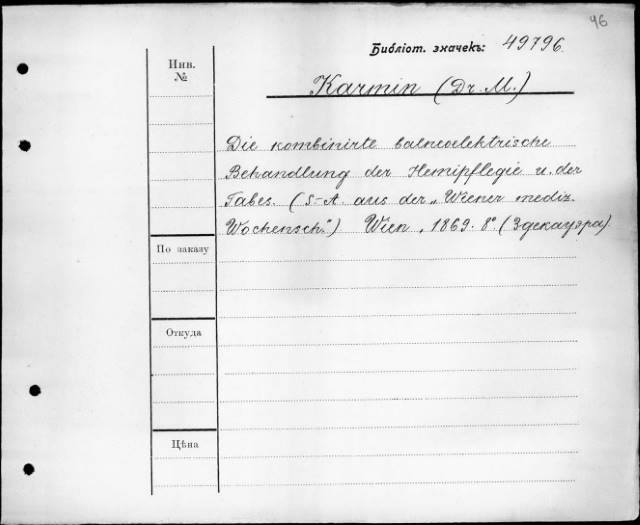 46
Библіот. значекъ: 49796.
Инв.
№
Karmin (Dr. M.)
Die kombinirte balneoelektrische
Behandlung der Hemipflegie u. der
Tabes. (S-A. aus der „Wiener mediz.
Wochensch.") Wien, 1869. 8°. (Здекауэра).
По заказу
Откуда
Цѣна